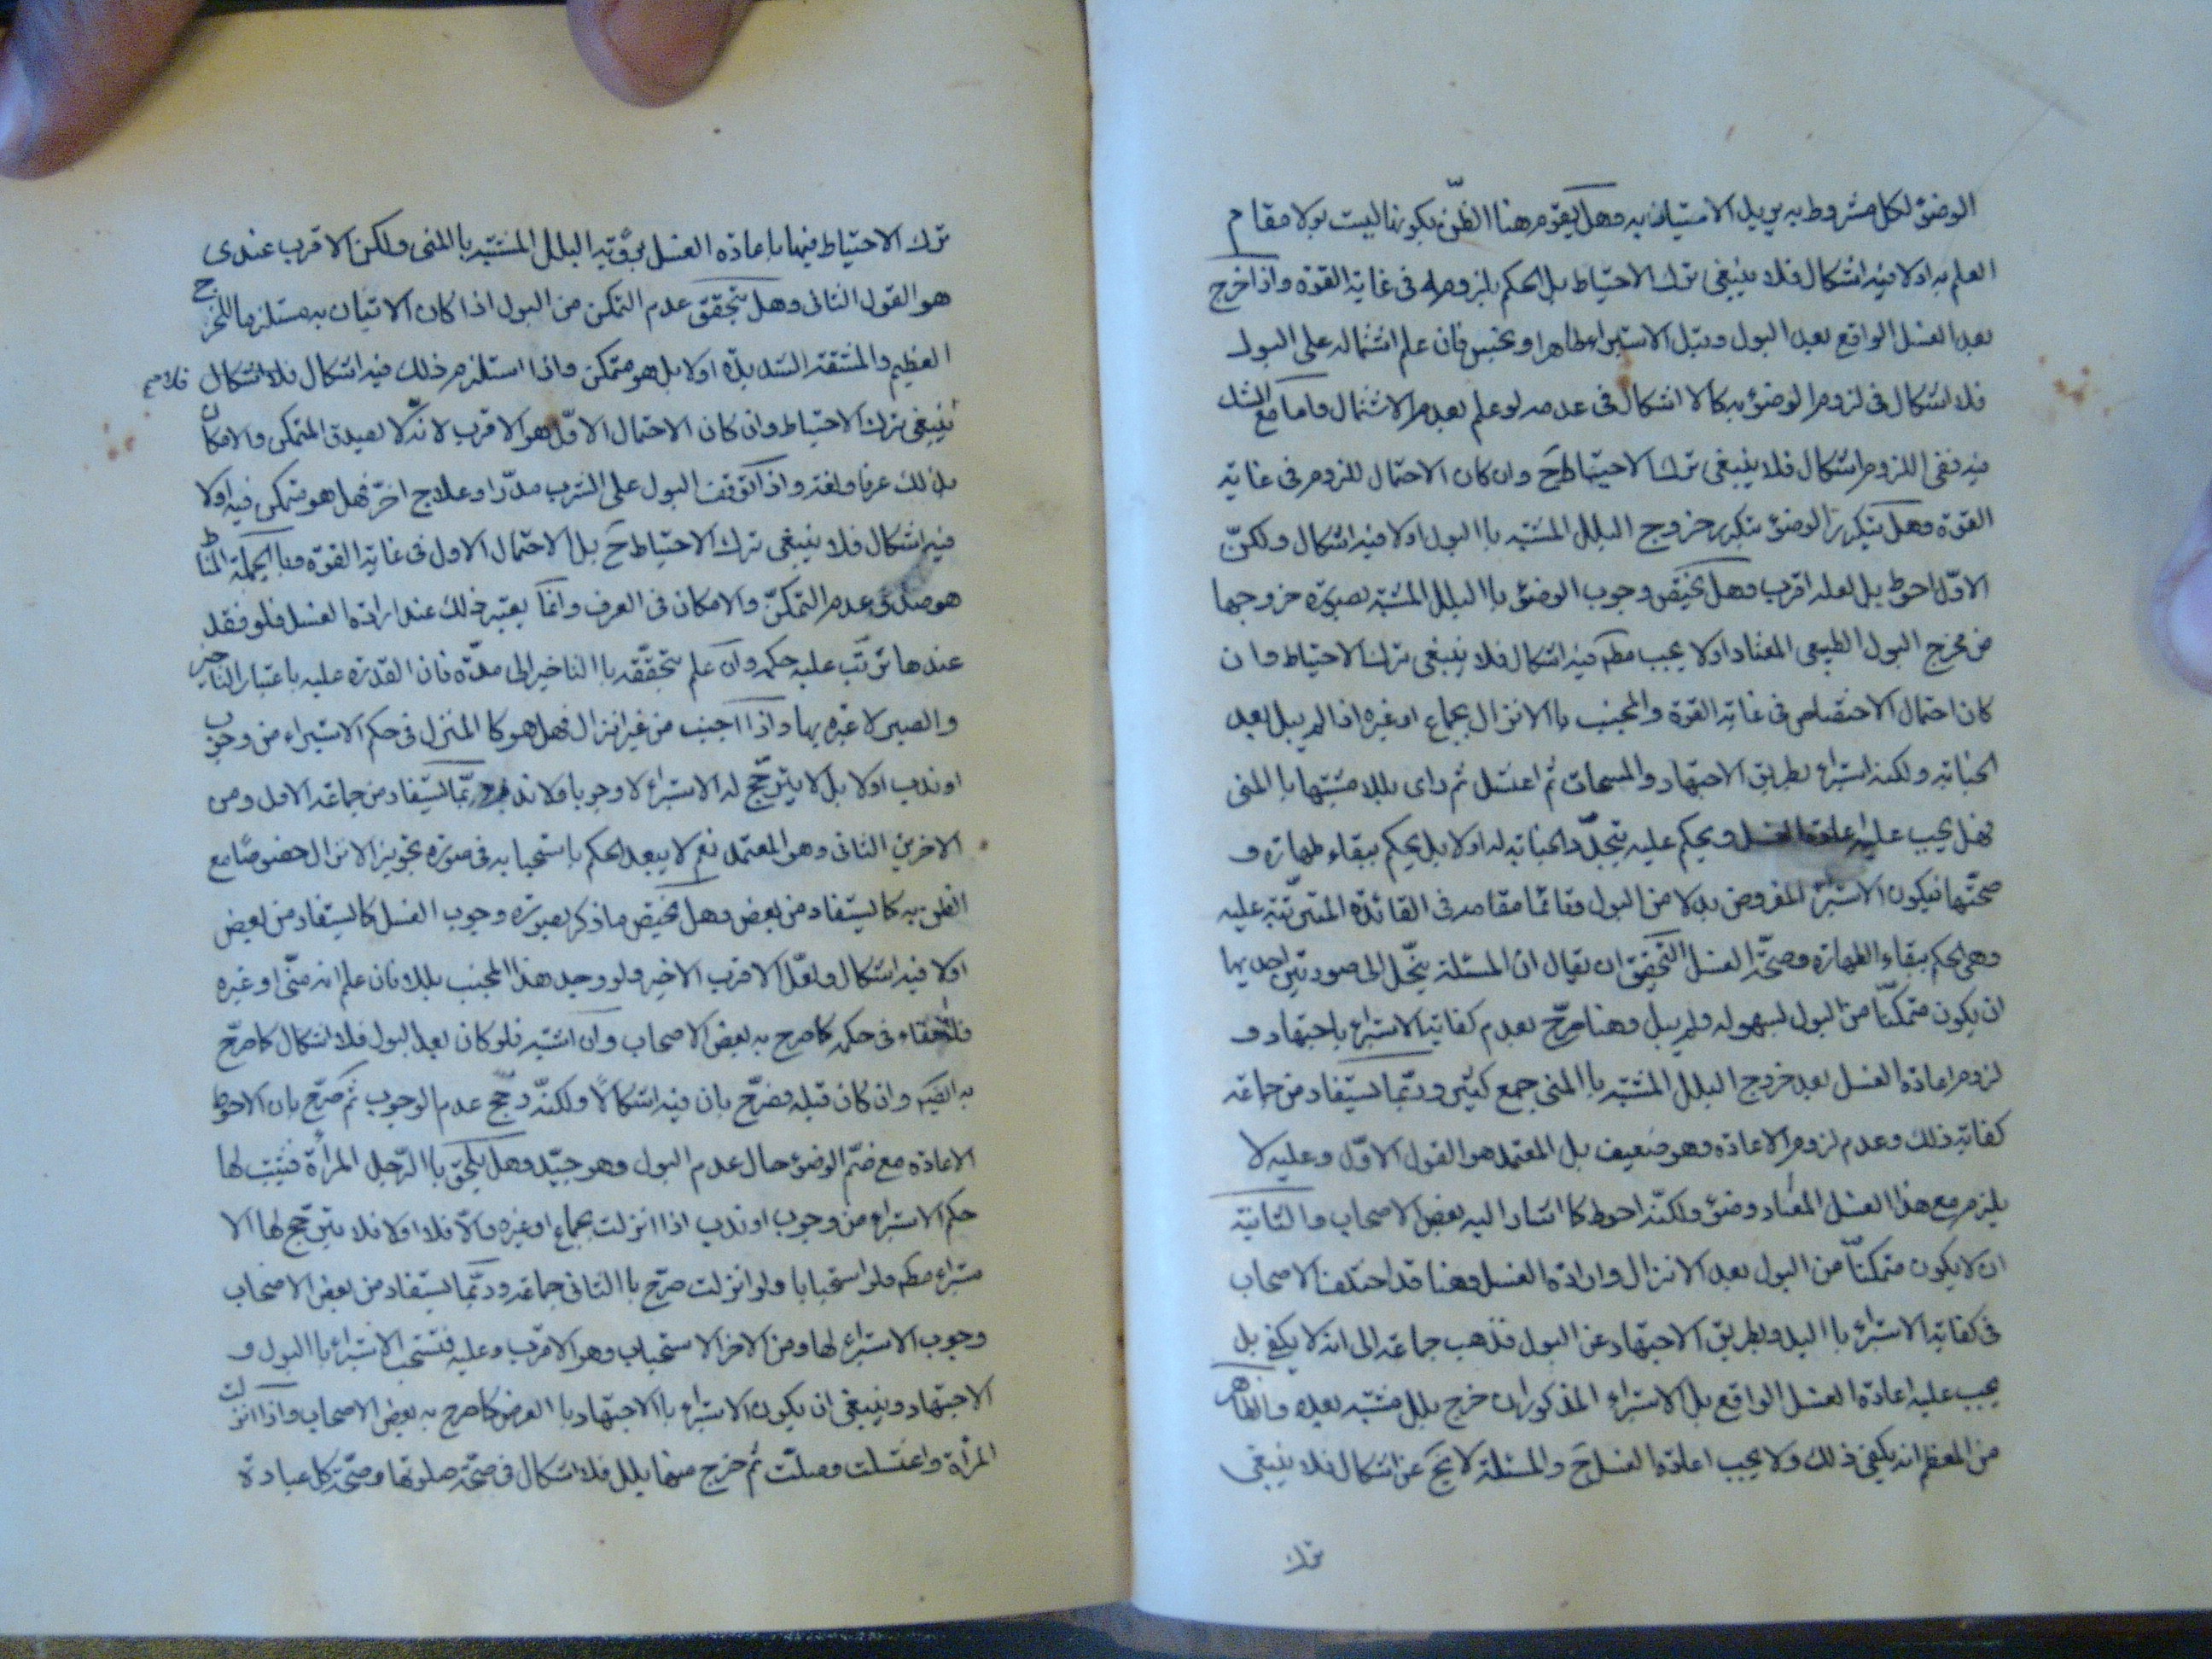 الوضوء لكل مشروط به يريد الاتيان به وهل يقوم هنا الظن بكونها ليست بولا مقام
العلم به اولا فيه اشكال فلا ينبغى ترك الاحتياط بل الحكم بلزومه فى غاية القوة واذا خرج
بعد الغسل الواقع بعد البول وقبل الاستبراء طاهرا ونجس فان علم اشتماله على البول
فلا اشكال فى لزوم الوضوء به كما لا اشكال فى عدمه لو علم بعدم الاشتمال واما مع الشك
فيه ففى اللزوم اشكال فلا ينبغى ترك الاحتياط ح وان كان الاحتمال للزوم فى غاية
القوة وهل يتكرر الوضوء بتكرر خروج البلل المشتبه باالبول اولا فيه اشكال ولكنّ
الاوّل احوط بل لعله اقرب وهل يختص وجوب الوضوء باالبلل المشتبه بصورة خروجها
من مخرج البول الطبيعى المعتاد اولا يجب مطم فيه اشكال فلا ينبغى ترك الاحتياط وان
كان احتمال الاختصاص فى غاية القوة والمجنب باالانزال بجماع او غيره اذا لم يبل بعد
الجنابة ولكنه استبراء بطريق الاجتهاد والمسحات ثم اغتسل ثم راى بللا مشتبها باالمنى
فهل يجب عليه اعادة الغسل ويحكم عليه بتجدّد الجنابة له اولا بل يحكم ببقاء طهارة و
صحّتها فيكون الاستبراء المفروض بدلا من البول وقائما مقامه فى الفائدة المترتّبة عليه
وهى الحكم ببقاء الطهارة وصحّة الغسل التحقيق ان يقال ان المسئلة ينحّل الى صورتين احديها
ان يكون متمكنّا من البول بسهولة ولم يبل وهنا صرّح بعدم كفاية الاستبراء باجتهاد و
لزوم اعادة الغسل بعد خروج البلل المشتبه باالمنى جمع كثير وربّما يستفاد من جماعة
كفاية ذلك وعدم لزوم الاعادة وهو ضعيف بل المعتمد هو القول الاوّل وعليه لا
يلزم مع هذا الغسل المعاد وضوء ولكنّه احوط كما اشار اليه بعض الاصحاب والثانية
ان لا يكون متمكنّا من البول بعد الانزال وارادة الغسل وهنا قد اختلف الاصحاب
فى كفاية الاستبراء باليد وبطريق الاجتهاد عن البول فذهب جماعة الى انه لا يكفى بل
يجب عليه اعادة الغسل الواقع بل الاستبراء المذكور ان خرج بلل مشتبه بعده والظاهر
من المعظم انه يكفى ذلك ولا يجب اعادة الغسل ح والمسئلة لا يخ عن اشكال فلا ينبغى
ترك
ترك الاحتياط فيها باعادة الغسل برؤية البلل المشتبه باالمنى ولكن الاقرب عندى
هو القول الثانى وهل يتحقق عدم التمكن من البول اذا كان الاتيان به مستلزما للحرج
العظيم والمشقة الشديدة اولا بل هو متمكن واذا استلزم ذلك فيه اشكال فلا اشكال
ينبغى ترك الاحتياط وان كان الاحتمال الاوّل هو الاقرب لانّه لا يصدق التمكن والامكان
بذلك عرفا ولغة واذا توقف البول على الشرب مدرّا او علاج اخر فهل هو متمكن فيه اولا
فيه اشكال فلا ينبغى ترك الاحتياط ح بل الاحتمال الاول فى غاية القوة وباالجملة المناط
هو صدق عدم التمكّن والامكان فى العرف وانّما يعتبر ذلك عند ارادة الغسل فلو فقد
عندها ترتّب عليه حكمه وان علم بتحقّقه باالتاخير الى مدّة فان القدرة عليه باعتبار التاخير
والصبر لا عبرة بها واذا اجنب من غير انزال فهل هو كالمنزل فى حكم الاستبراء من وجوب
او ندب اولا بل لا يترجّح له الاستبراء لا وجوبا ولا ندبا ربّما يستفاد من جماعة الاول ومن
الاخرين الثانى وهو المعتمد نعم لا يبعد الحكم باستحبابه فى صورة تجويز الانزال خصوصا مع
الظن به كما يستفاد من بعض وهل يختص ما ذكر بصورة وجوب الغسل كما يستفاد من بعض
اولا فيه اشكال ولعلّ الاقرب الاخير ولو وجد هذا المجنب بللا فان علم انه منّى او غيره
فلا خفاء فى حكمه كما صرح به بعض الاصحاب وان اشتبه فلو كان بعد البول فلا اشكال كما صرّح
به الفيه وان كان قبله فصرّح بان فيه اشكالا ولكنّه رجّح عدم الوجوب ثم صرّح بان الاحوط
الاعادة مع ضمّ الوضوء حال عدم البول وهو جيّد وهل يلحق باالرّجل المرأة فيثبت لها
حكم الاستبراء من وجوب او ندب اذا انزلت بجماع او غيره والّا فلا اولا فلا يترجّح لها الا
ستبراء مطم ولو استحبابا ولو انزلت صرّح باالثانى جماعة وربّما يستفاد من بعض الاصحاب
وجوب الاستبراء لها ومن الاخر الاستحباب وهو الاقرب وعليه فتستحب الاستبراء باالبول و
الاجتهاد وينبغى ان يكون الاستبراء باالاجتهاد باالعرض كما صرح به بعض الاصحاب واذا انزلت
المرأة واغتسلت وصلّت ثم خرج منها بلل فلا اشكال فى صحّة صلوتها وصحّة كل عبادة